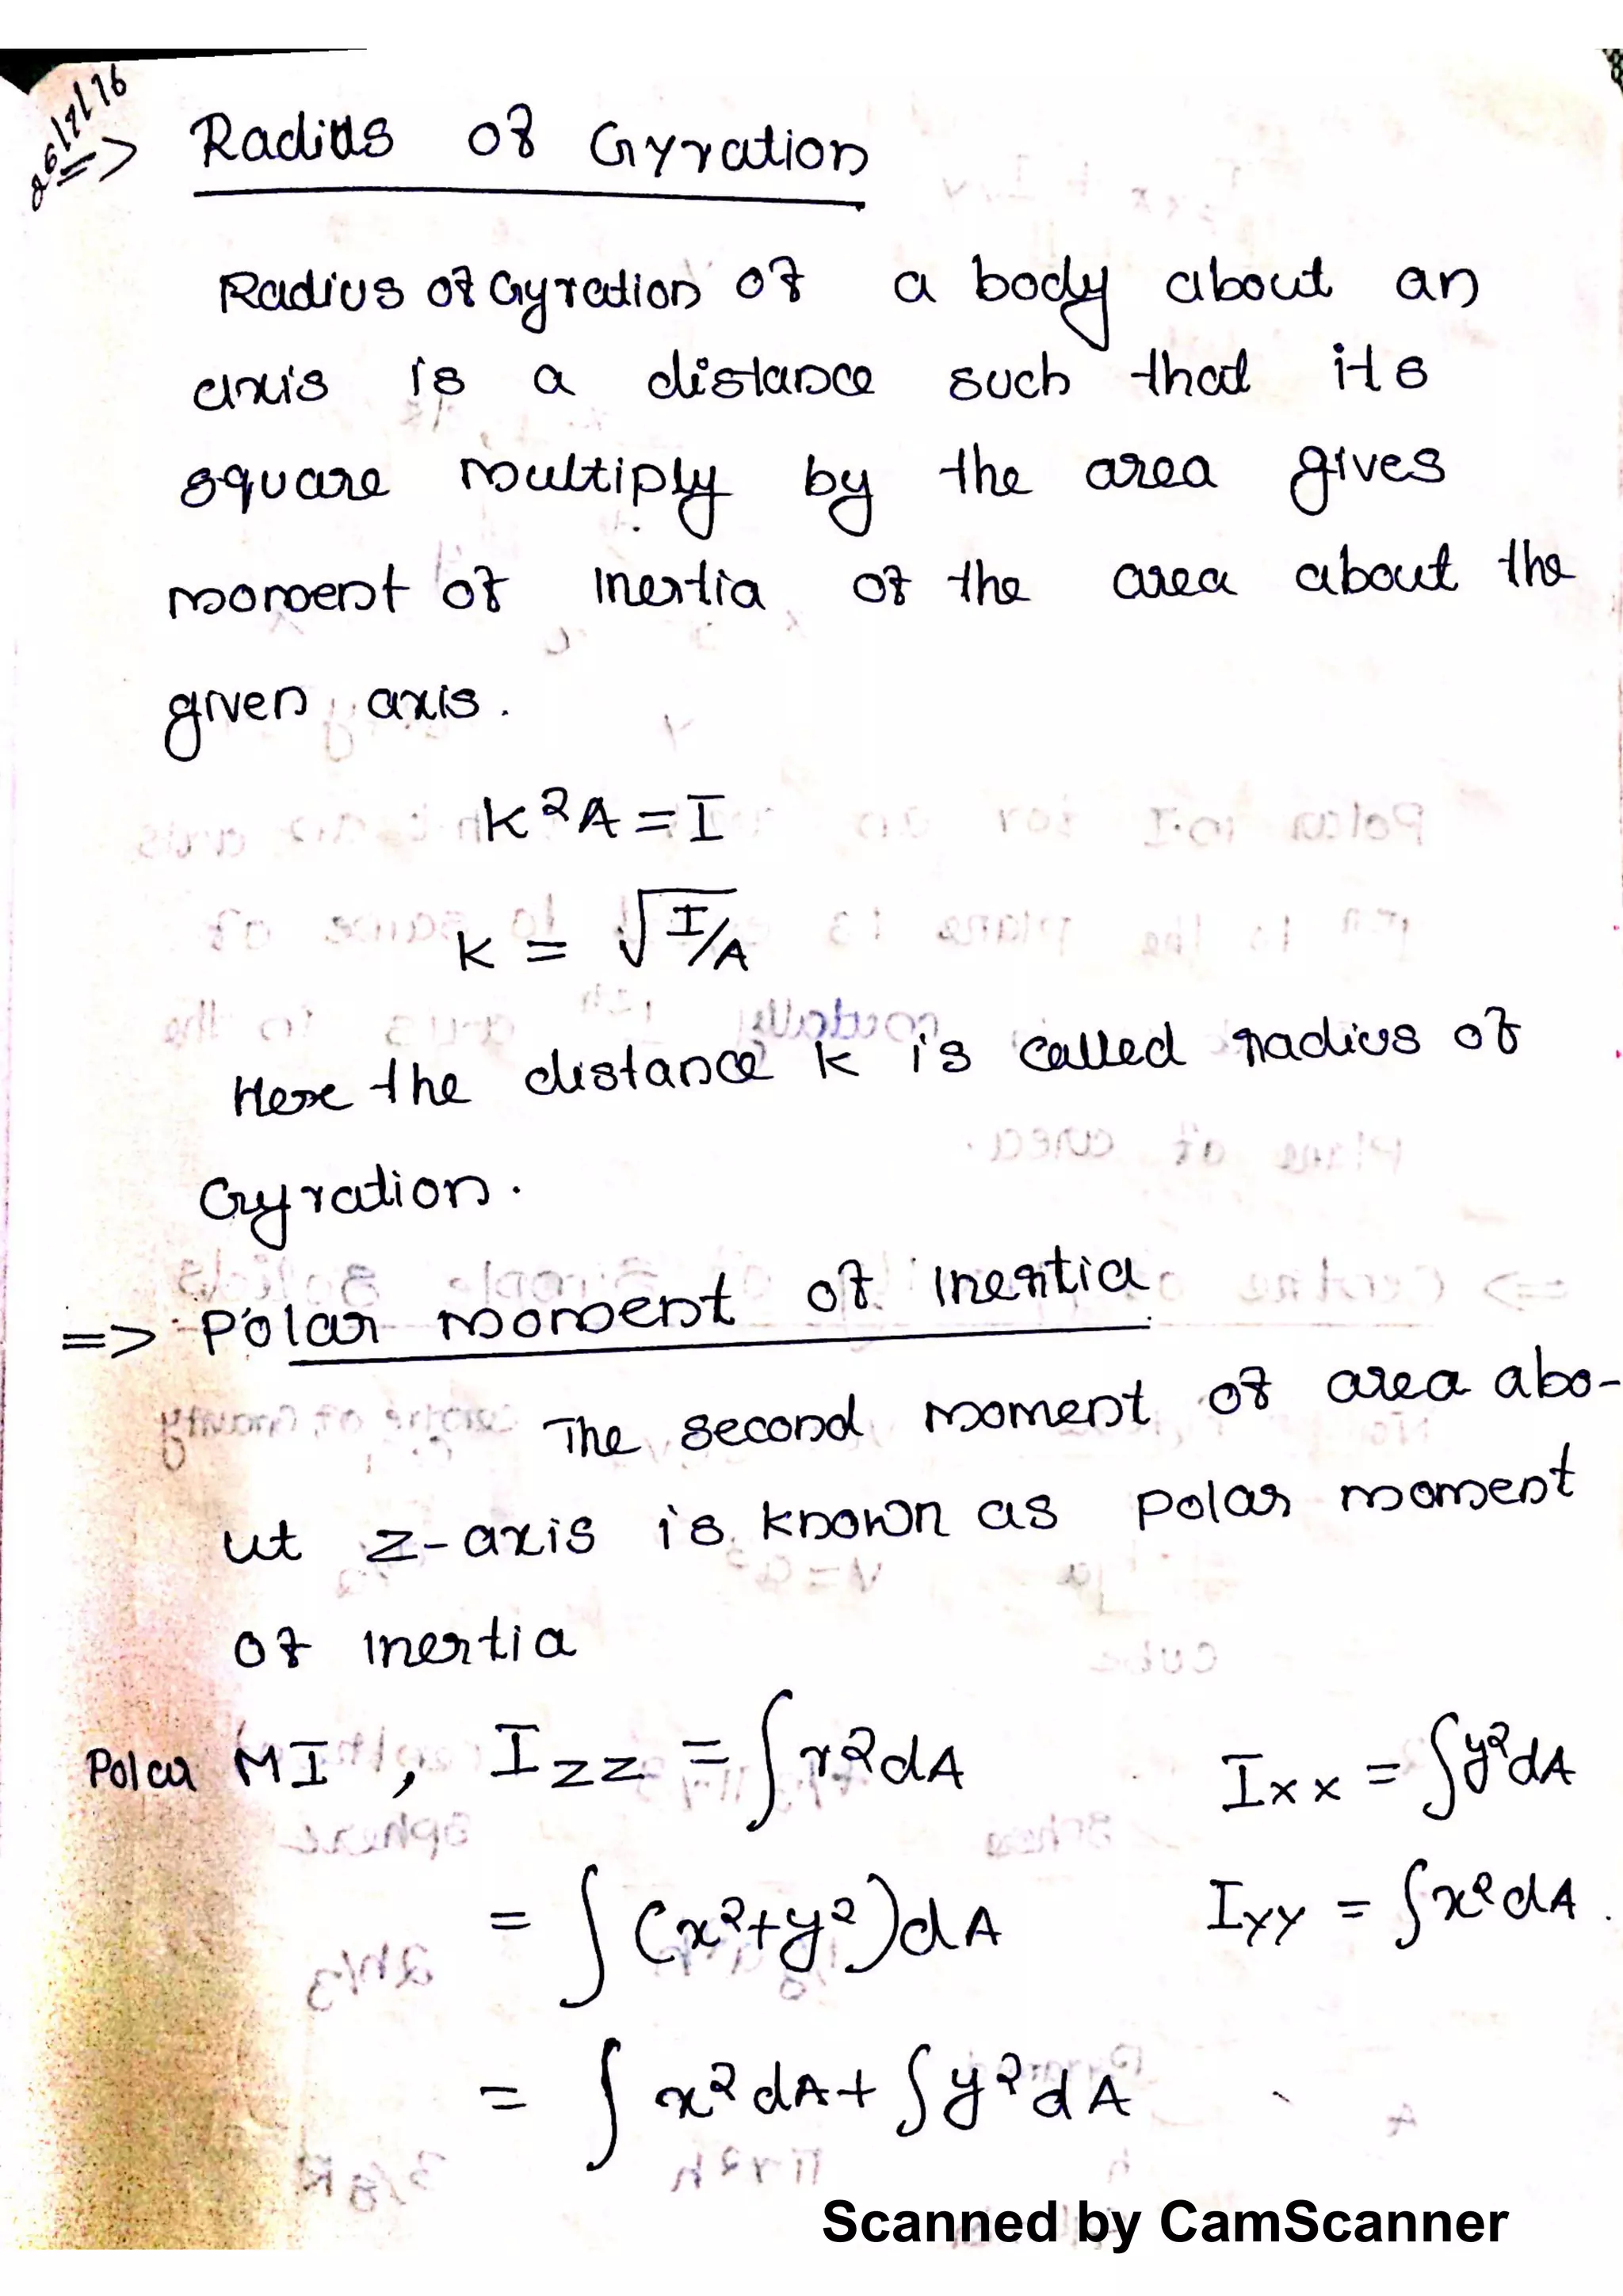 26/12/16
=> Radius of Gyration
Radius of Gyration of a body about an
axis is a distance such that its
square multiply by the area gives
moment of inertia of the area about the
given axis.
K²A = I
K = √I/A
Here the distance K is called radius of
Gyration.
=> Polar moment of inertia
The second moment of area abo-
ut z-axis is known as polar moment
of inertia
Polar MI, Izz = ∫r²dA Ixx = ∫y²dA
= ∫(x²+y²)dA Iyy = ∫x²dA.
= ∫x²dA + ∫y²dA
Scanned by CamScanner